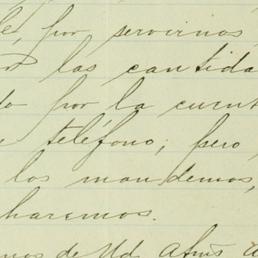 , por servirnos
las cantida
do por la cuent
teléfono; pero
los mandemos,
haremos.
nos de Ud. AfmS